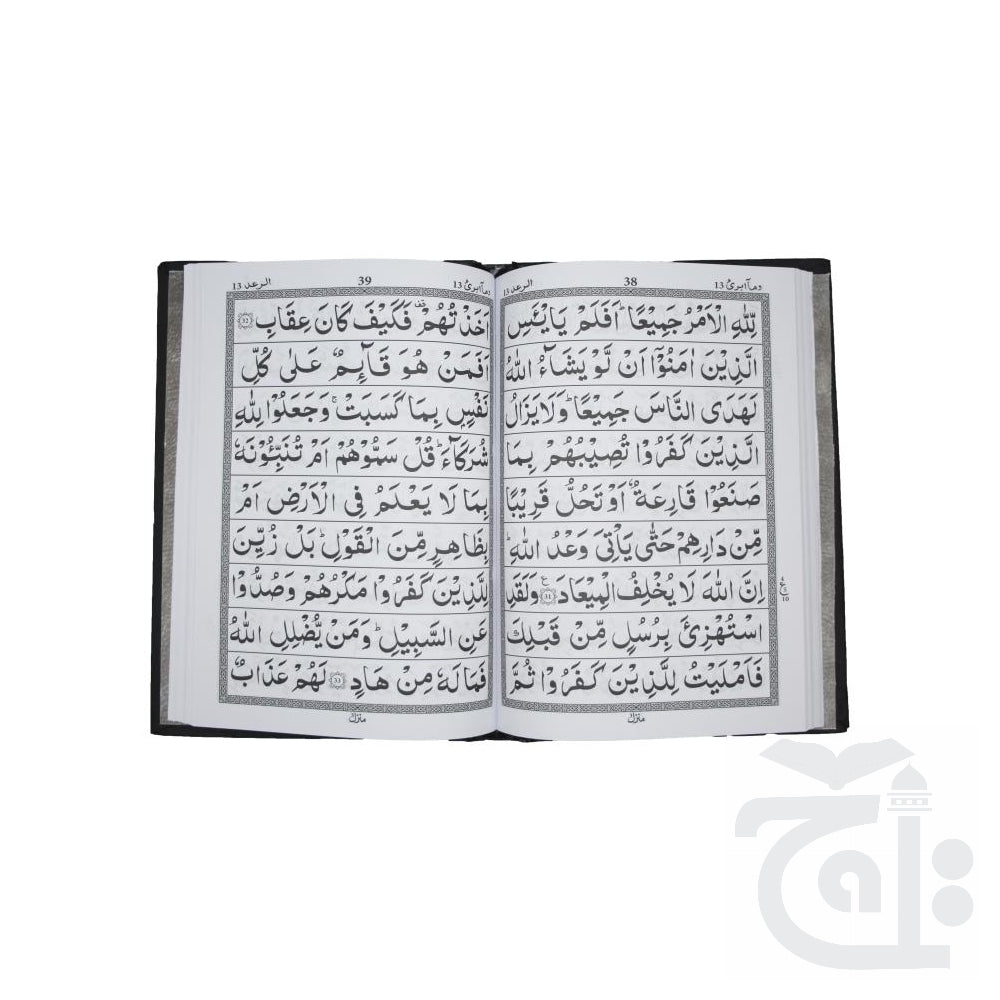 وما ابرئ 13
38
الرعد 13
لِّلّٰهِ الْاَمْرُ جَمِيْعًا ؕ اَفَلَمْ يَايْـَٔسِ
الَّذِيْنَ اٰمَنُوْۤا اَنْ لَّوْ يَشَآءُ اللّٰهُ
لَهَدَى النَّاسَ جَمِيْعًا ؕ وَلَا يَزَالُ
الَّذِيْنَ كَفَرُوْا تُصِيْبُهُمْ بِمَا
صَنَعُوْا قَارِعَةٌ اَوْ تَحُلُّ قَرِيْبًا
مِّنْ دَارِهِمْ حَتّٰى يَاْتِىَ وَعْدُ اللّٰهِ ؕ
اِنَّ اللّٰهَ لَا يُخْلِفُ الْمِيْعَادَ 31 وَلَقَدِ
اسْتُهْزِئَ بِرُسُلٍ مِّنْ قَبْلِكَ
فَاَمْلَيْتُ لِلَّذِيْنَ كَفَرُوْا ثُمَّ
ع 10
وما ابرئ 13
39
الرعد 13
اَخَذْتُهُمْ فَكَيْفَ كَانَ عِقَابِ 32
اَفَمَنْ هُوَ قَآئِمٌ عَلٰى كُلِّ
نَفْسٍۭ بِمَا كَسَبَتْ ۚ وَجَعَلُوْا لِلّٰهِ
شُرَكَآءَ ؕ قُلْ سَمُّوْهُمْ اَمْ تُنَبِّئُوْنَهٗ
بِمَا لَا يَعْلَمُ فِى الْاَرْضِ اَمْ
بِظَاهِرٍ مِّنَ الْقَوْلِ ؕ بَلْ زُيِّنَ
لِلَّذِيْنَ كَفَرُوْا مَكْرُهُمْ وَصُدُّوْا
عَنِ السَّبِيْلِ ؕ وَمَنْ يُّضْلِلِ اللّٰهُ
فَمَا لَهٗ مِنْ هَادٍ 33 لَهُمْ عَذَابٌ